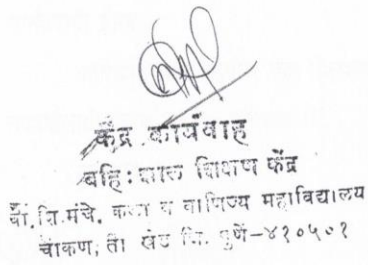 केंद्र कार्यवाह
बहि:शाल शिक्षण केंद्र
शि.मंचे. कला व वाणिज्य महाविद्यालय
चाकण, ता खेड जि. पुणे-४१०५०१